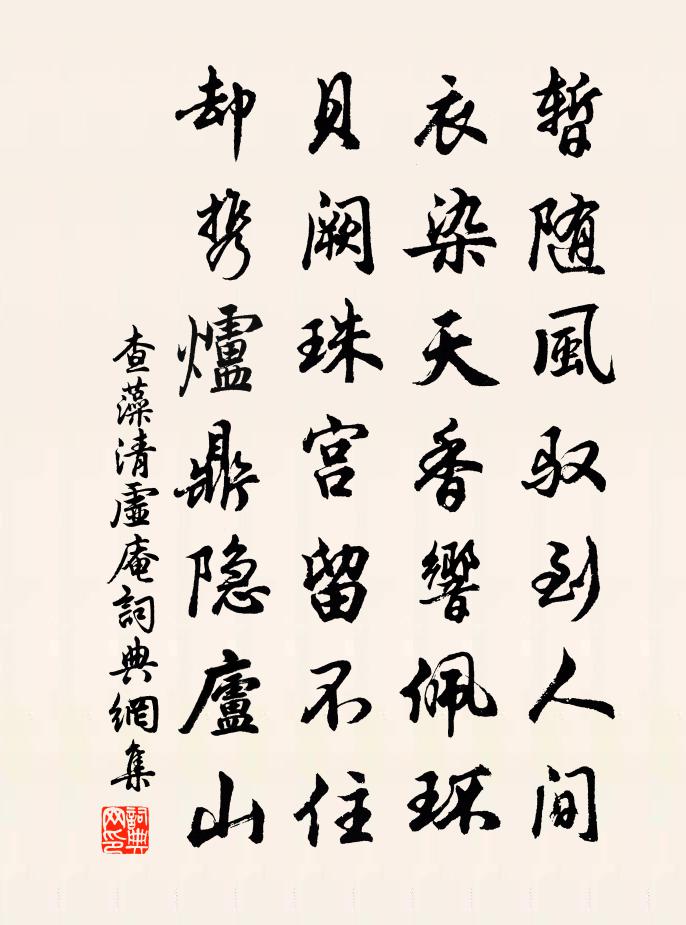 暫随風馭到人间
衣染天香響佩环
貝阙珠宫留不住
却携爐鼎隐廬山
查藻清虛庵詞典網集
詞典網印